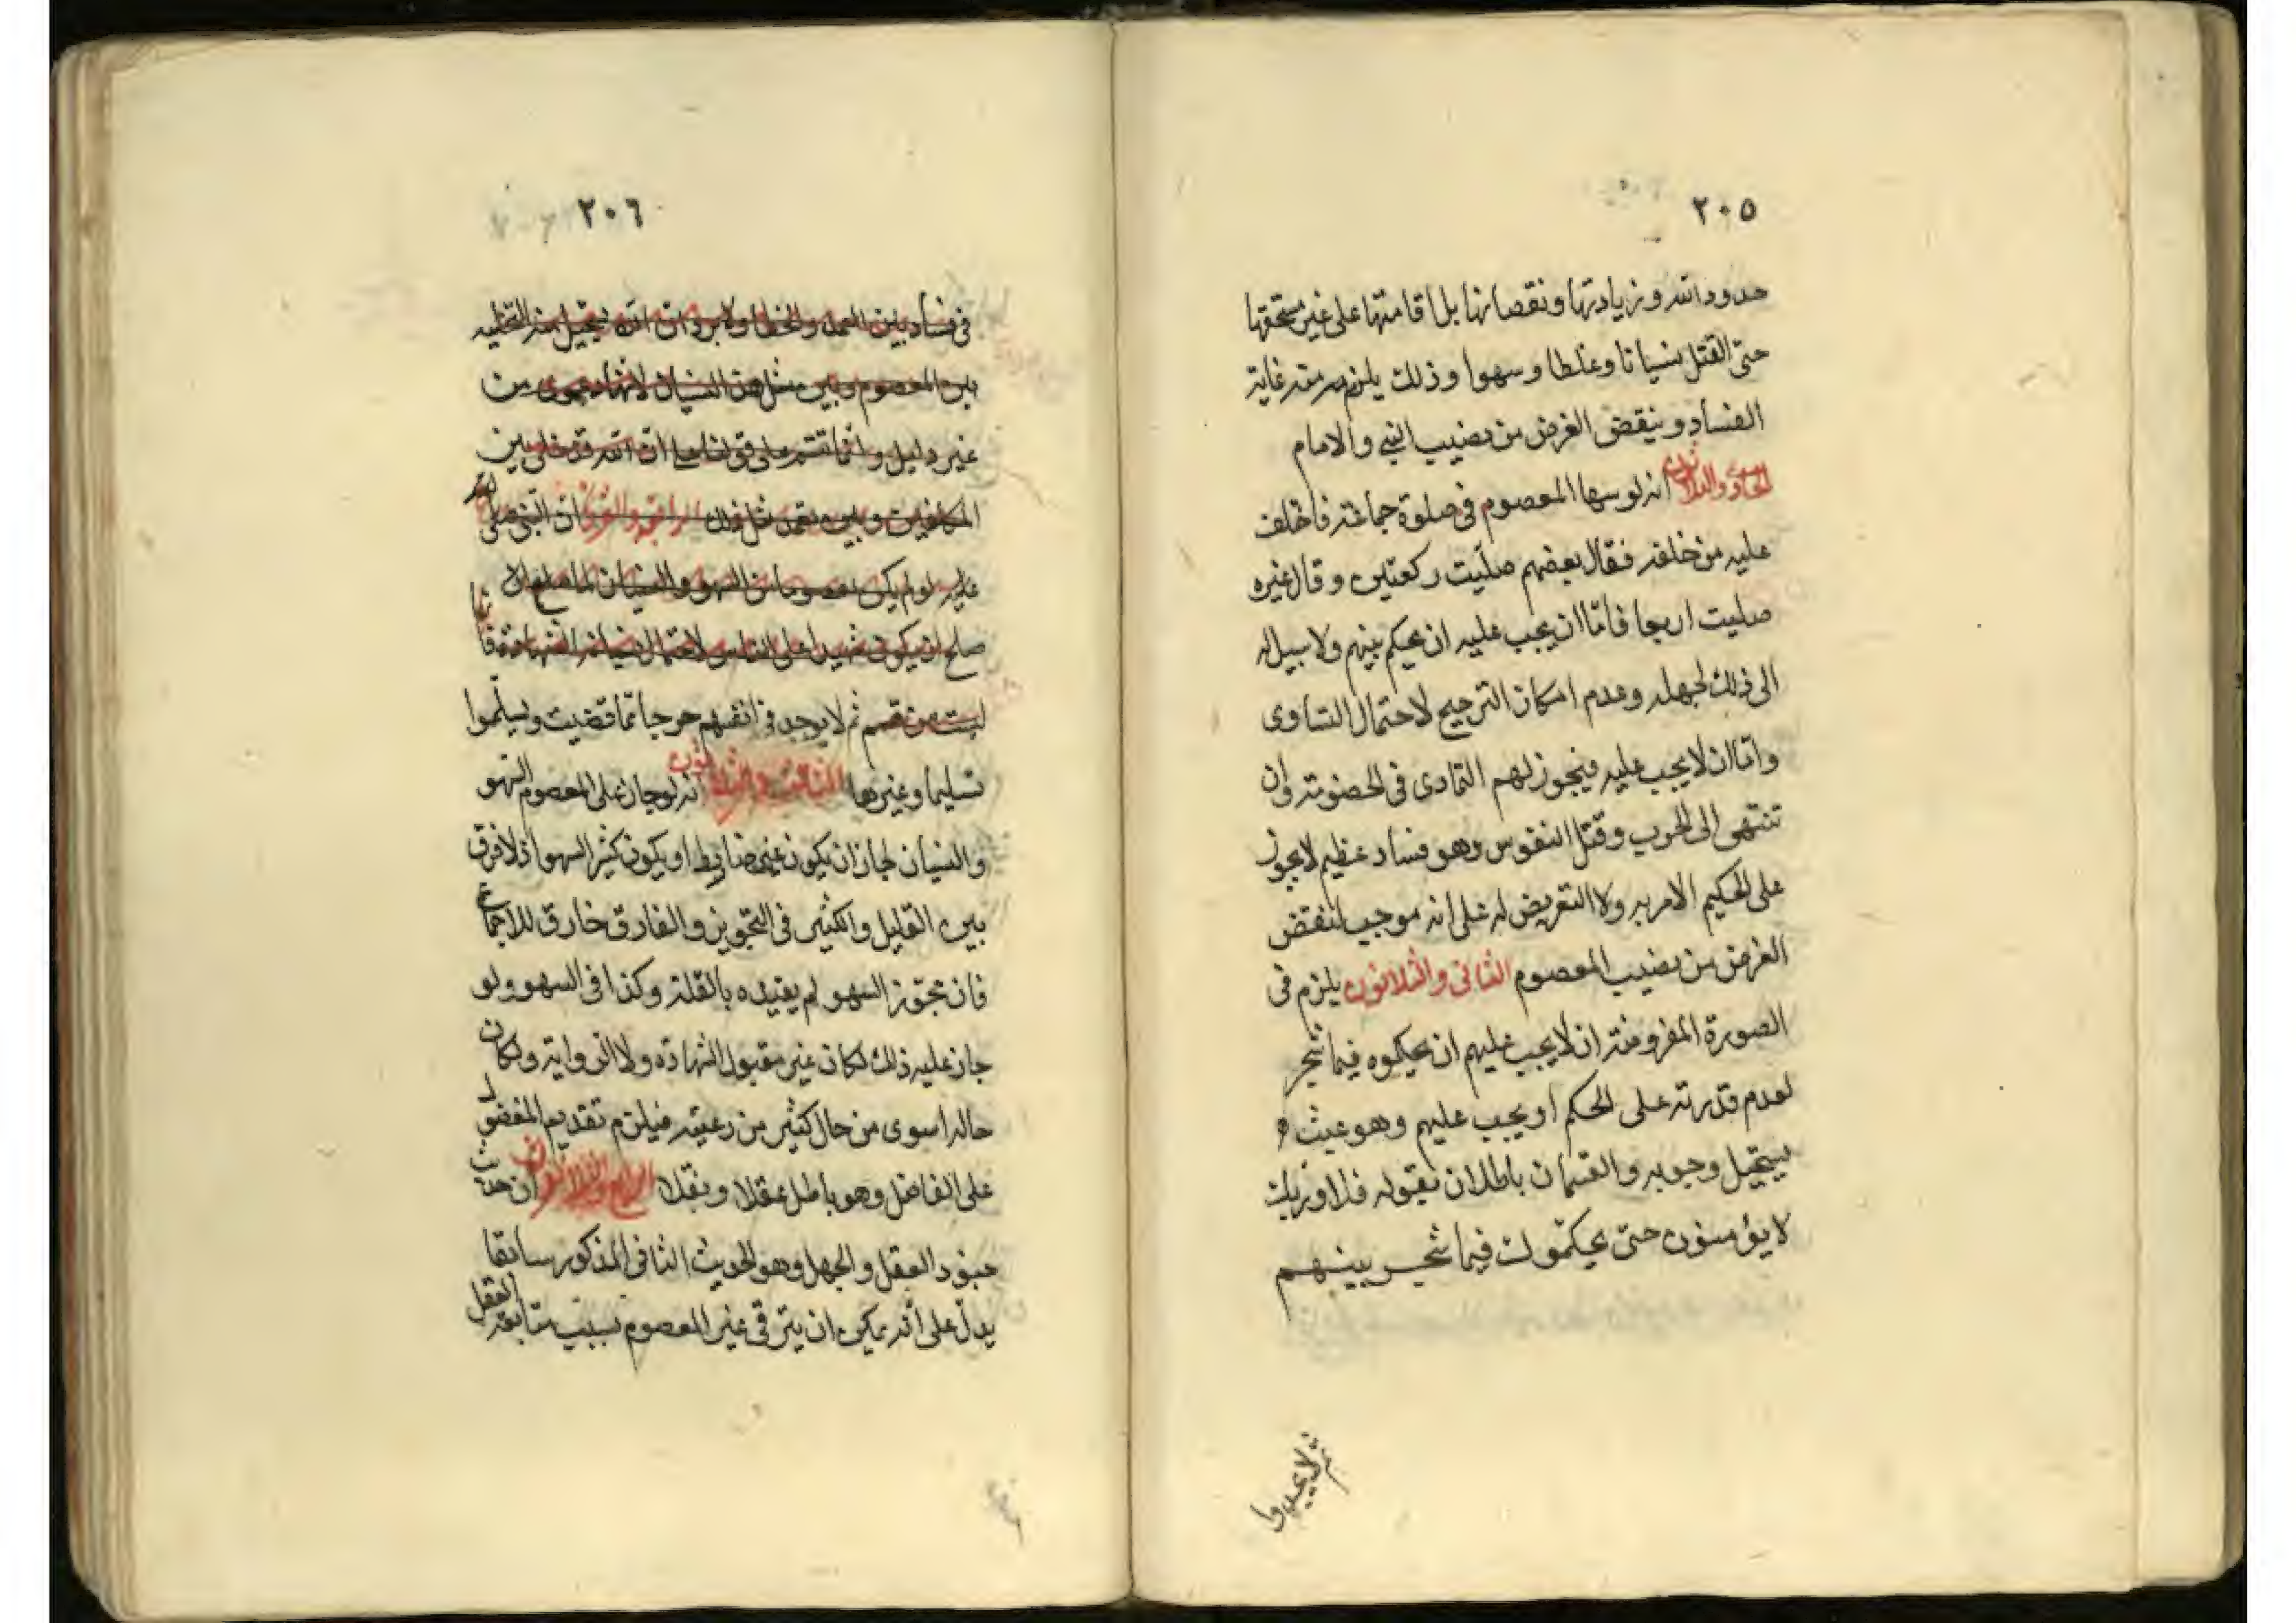 ٢٠٥
حدود الله و زيادتها ونقصانها بل اقامتها على غير مستحقها
حتى القتل نسيانا وغلطا وسهوا وذلك يلزم منه غاية
الفساد وينقض الغرض من نصيب النبي والامام
الحادى والثلاثون انه لو سها المعصوم فى صلوة جماعة فاختلف
عليه من خلفه فقال بعضهم صليت ركعتين وقال غيره
صليت اربعا فامّا ان يجب عليه ان يحكم بينهم ولا سبيل له
الى ذلك لجهله وعدم امكان الترجيح لاحتمال التساوى
وامّا ان لا يجب عليه فيجوز لهم التمادى فى الخصومة وان
تنتهى الى الحرب وقتل النفوس وهو فساد عظيم لا يجوز
على الحكيم الامر به ولا التعريض له على انه موجب لنقض
الغرض من نصيب المعصوم الثانى والثلاثون يلزم فى
الصورة المفروضة ان لا يجب عليهم ان يحكموه فيما شجر
لعدم قدرته على الحكم او يجب عليهم وهو عبث و
يستحيل وجوبه والقسمان باطلان بقوله فلا وربك
لا يؤمنون حتى يحكّموك فيما شجر بينهم
ثم لا يجدوا
٢٠٦
فى فساد بين العمد والخطا ولا يرد ان الله يستحيل منه التخلية
بين المعصوم وبين مثل هذا النسيان لانها دعوى من
غير دليل وانما تتم على قولنا ان الله قد خلى بين
المكلفين وبين تعمد مثل ذلك ان النبى صلى الله
عليه لو لم يكن معصوما من السهو والنسيان لما صلح
صلح ان يكون شهيدا على الناس لاحتمال نسيانه الشهادة
ثم لا يوجد فى انفسهم حرجا ممّا قضيت ويسلّموا
تسليما وغيرها الثالث والثلاثون انه لو جاز على المعصوم السهو
والنسيان لجاز ان يكون غير ضابط او يكون كثير السهو اذ لا فرق
بين القليل والكثير فى التجويز والفارق خارق للاجماع
فان مجوّز السهو لم يقيده بالقلة وكذا فى السهو ولو
جاز عليه ذلك لكان غير مقبول الشهادة ولا الرواية ولكان
حاله اسوى من حال كثير من رعيته فيلزم تقديم المفضول
على الفاضل وهو باطل عقلا ونقلا الرابع والثلاثون ان حديث
جنود العقل والجهل وهو الحديث الثانى المذكور سابقا
يدلّ على انّه يمكن ان يترقى غير المعصوم بسبب متابعة العقل